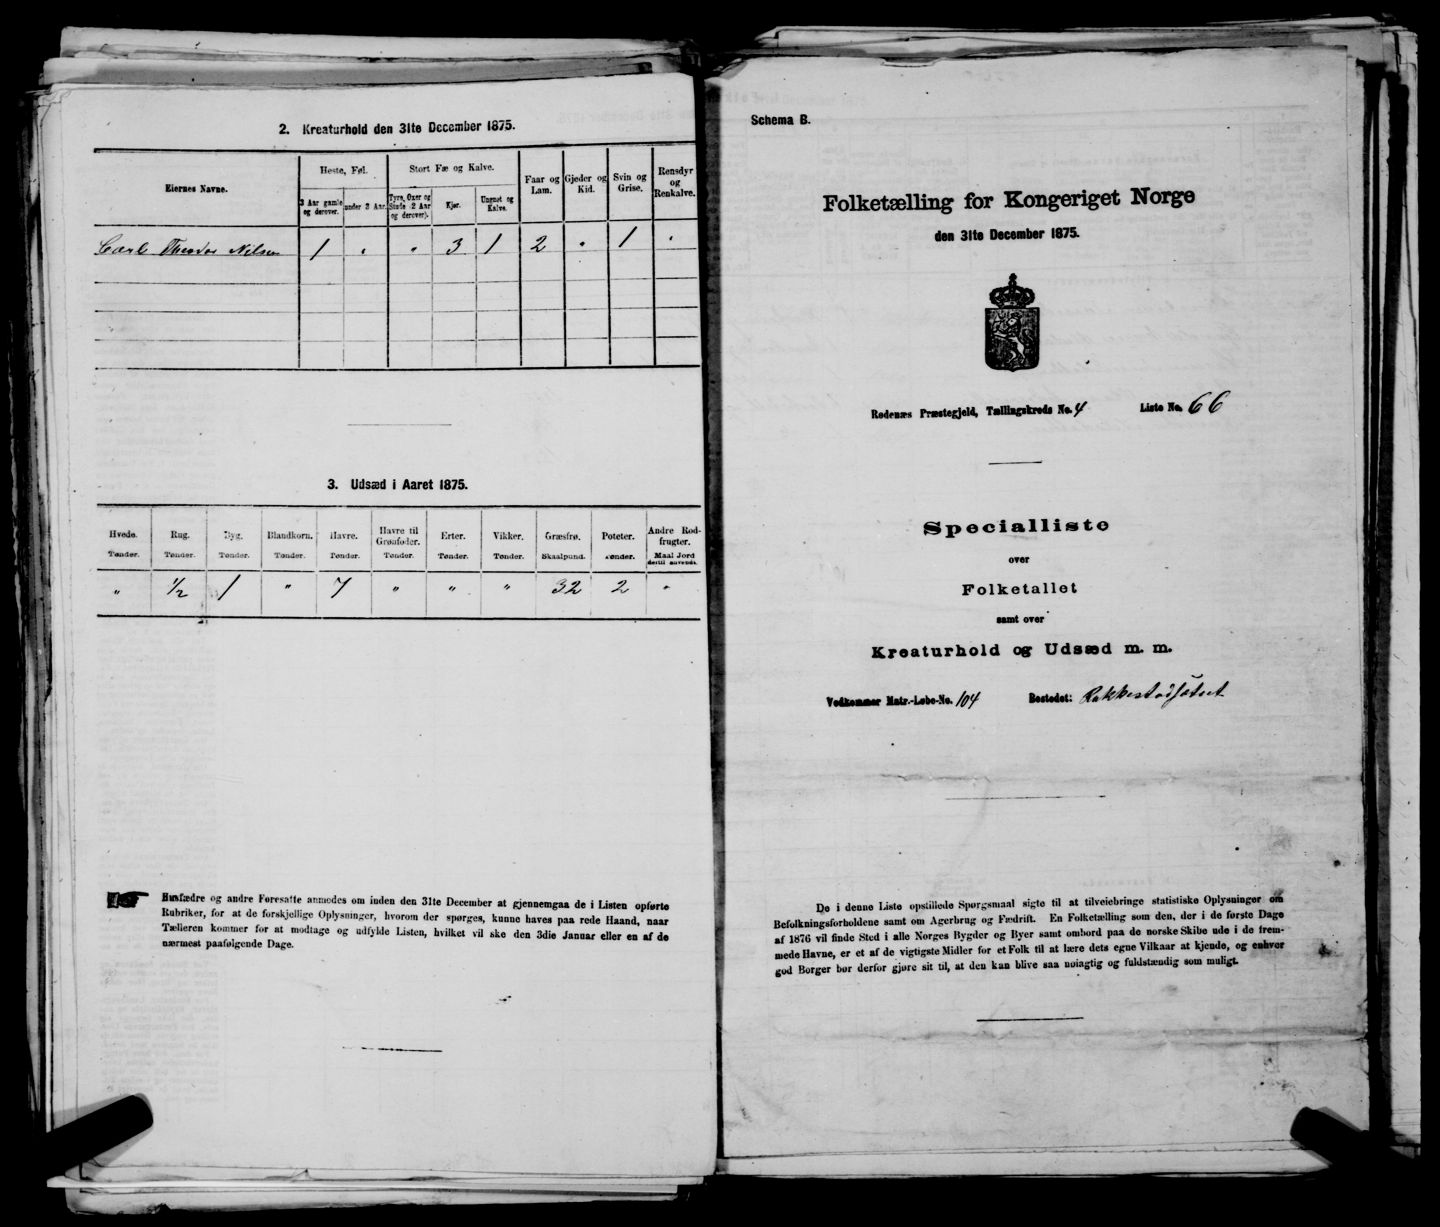 2. Kreaturhold den 31te December 1875.
Eiernes Navne.
Heste, Føl.
Stort Fæ og Kalve.
Faar og Lam.
Gjeder og Kid.
Svin og Grise.
Rensdyr og Renkalve.
3 Aar gamle og derover.
under 3 Aar.
Tyre, Oxer og Stude (2 Aar og derover).
Kjør.
Ungnet og Kalve.
Carl Theodor Nilsen 1 " " 3 1 2 " 1 "
3. Udsæd i Aaret 1875.
Hvede. Rug. Byg. Blandkorn. Havre. Havre til Grønfoder. Erter. Vikker. Græsfrø. Poteter. Andre Rodfrugter.
Tønder. Tønder. Tønder. Tønder. Tønder. Tønder. Tønder. Tønder. Skaalpund. Tønder. Maal Jord dertil anvendt.
" 1/2 1 " 7 " " " 32 2 "
Husfædre og andre Foresatte anmodes om inden den 31te December at gjennemgaa de i Listen opførte
Rubriker, for at de forskjellige Oplysninger, hvorom der spørges, kunne haves paa rede Haand, naar
Tælleren kommer for at modtage og udfylde Listen, hvilket vil ske den 3die Januar eller en af de
nærmest paafølgende Dage.
Schema B.
Folketælling for Kongeriget Norge
den 31te December 1875.
Rødenæs Præstegjeld, Tællingskreds No. 4 Liste No. 66
Specialliste
over
Folketallet
samt over
Kreaturhold og Udsæd m. m.
Vedkommer Matr.-Løbe-No. 104 Bostedet: Rakkestadsætret
De i denne Liste opstillede Spørgsmaal sigte til at tilveiebringe statistiske Oplysninger om
Befolkningsforholdene samt om Agerbrug og Fædrift. En Folketælling som den, der i de første Dage
af 1876 vil finde Sted i alle Norges Bygder og Byer samt ombord paa de norske Skibe ude i de frem-
mede Havne, er et af de vigtigste Midler for et Folk til at lære dets egne Vilkaar at kjende, og enhver
god Borger bør derfor gjøre sit til, at den kan blive saa nøiagtig og fuldstændig som muligt.